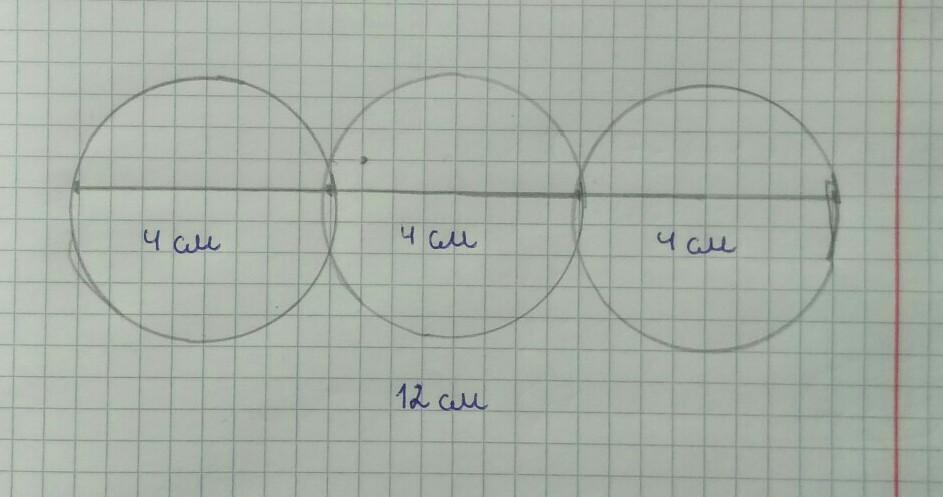 4 см
4 см
4 см
12 см